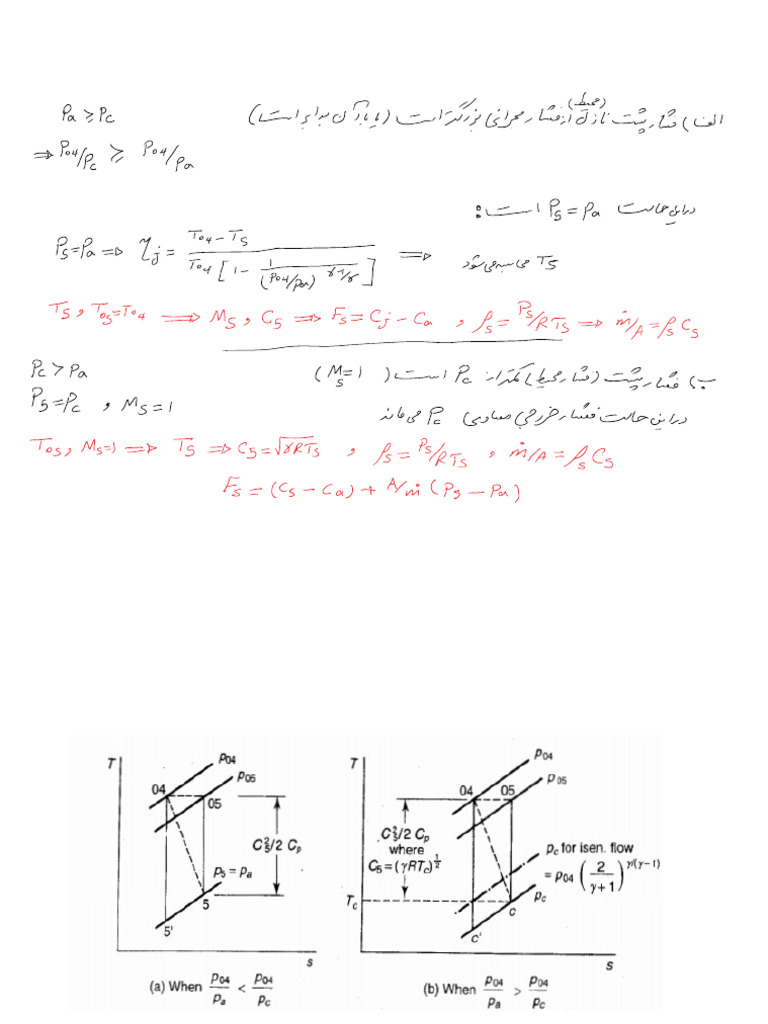 الف) فشار پشت نازل (محیط) از فشار بحرانی بزرگتر است (یا با آن برابر است) Pa ≥ Pc
⇒ P04/Pc ≥ P04/Pa
در این حالت P5 = Pa است:
P5 = Pa ⇒ ηj = (T04 − T5) / (T04 [1 − 1/(P04/Pa)^(γ−1/γ)]) ⇒ T5 محاسبه می‌شود
T5 , T05 = T04 ⇒ M5 , C5 ⇒ Fs = Cj − Ca , ρ5 = P5/RT5 ⇒ ṁ/A = ρ5 C5
ب) فشار پشت (فشار محیط) کمتر از Pc است (M5 = 1) Pc > Pa
P5 = Pc , M5 = 1
در این حالت فشار خروجی مساوی Pc می‌ماند
T05 , M5 = 1 ⇒ T5 ⇒ C5 = √γRT5 , ρ5 = P5/RT5 , ṁ/A = ρ5 C5
Fs = (C5 − Ca) + A/ṁ (P5 − Pa)
T
04
p04
p05
05
C5²/2 Cp
p5 = pa
5
5'
s
(a) When p04/pa < p04/pc
T
04
05
p04
p05
C5²/2 Cp
where
C5 = (γRTc)^½
pc for isen. flow
= p04 (2/(γ+1))^γ/(γ−1)
Tc
c
pc
c'
s
(b) When p04/pa > p04/pc